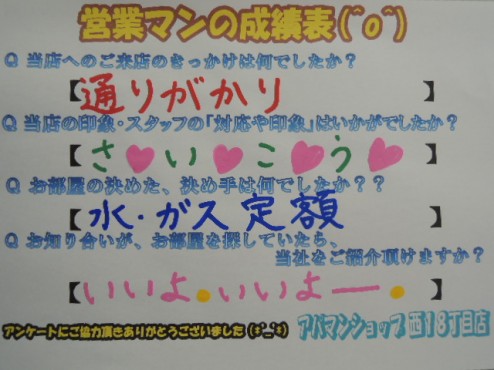 営業マンの成績表(^o^)
Q 当店へのご来店のきっかけは何でしたか？
【通りがかり】
Q 当店の印象・スタッフの「対応や印象」はいかがでしたか？
【さ♥い♥こ♥う♥】
Q お部屋の決めた、決め手は何でしたか？？
【水・ガス定額】
Q お知り合いが、お部屋を探していたら、
当社をご紹介頂けますか？
【いいよ。いいよー。】
アンケートにご協力頂きありがとうございました(*^_^*)
アパマンショップ 西18丁目店